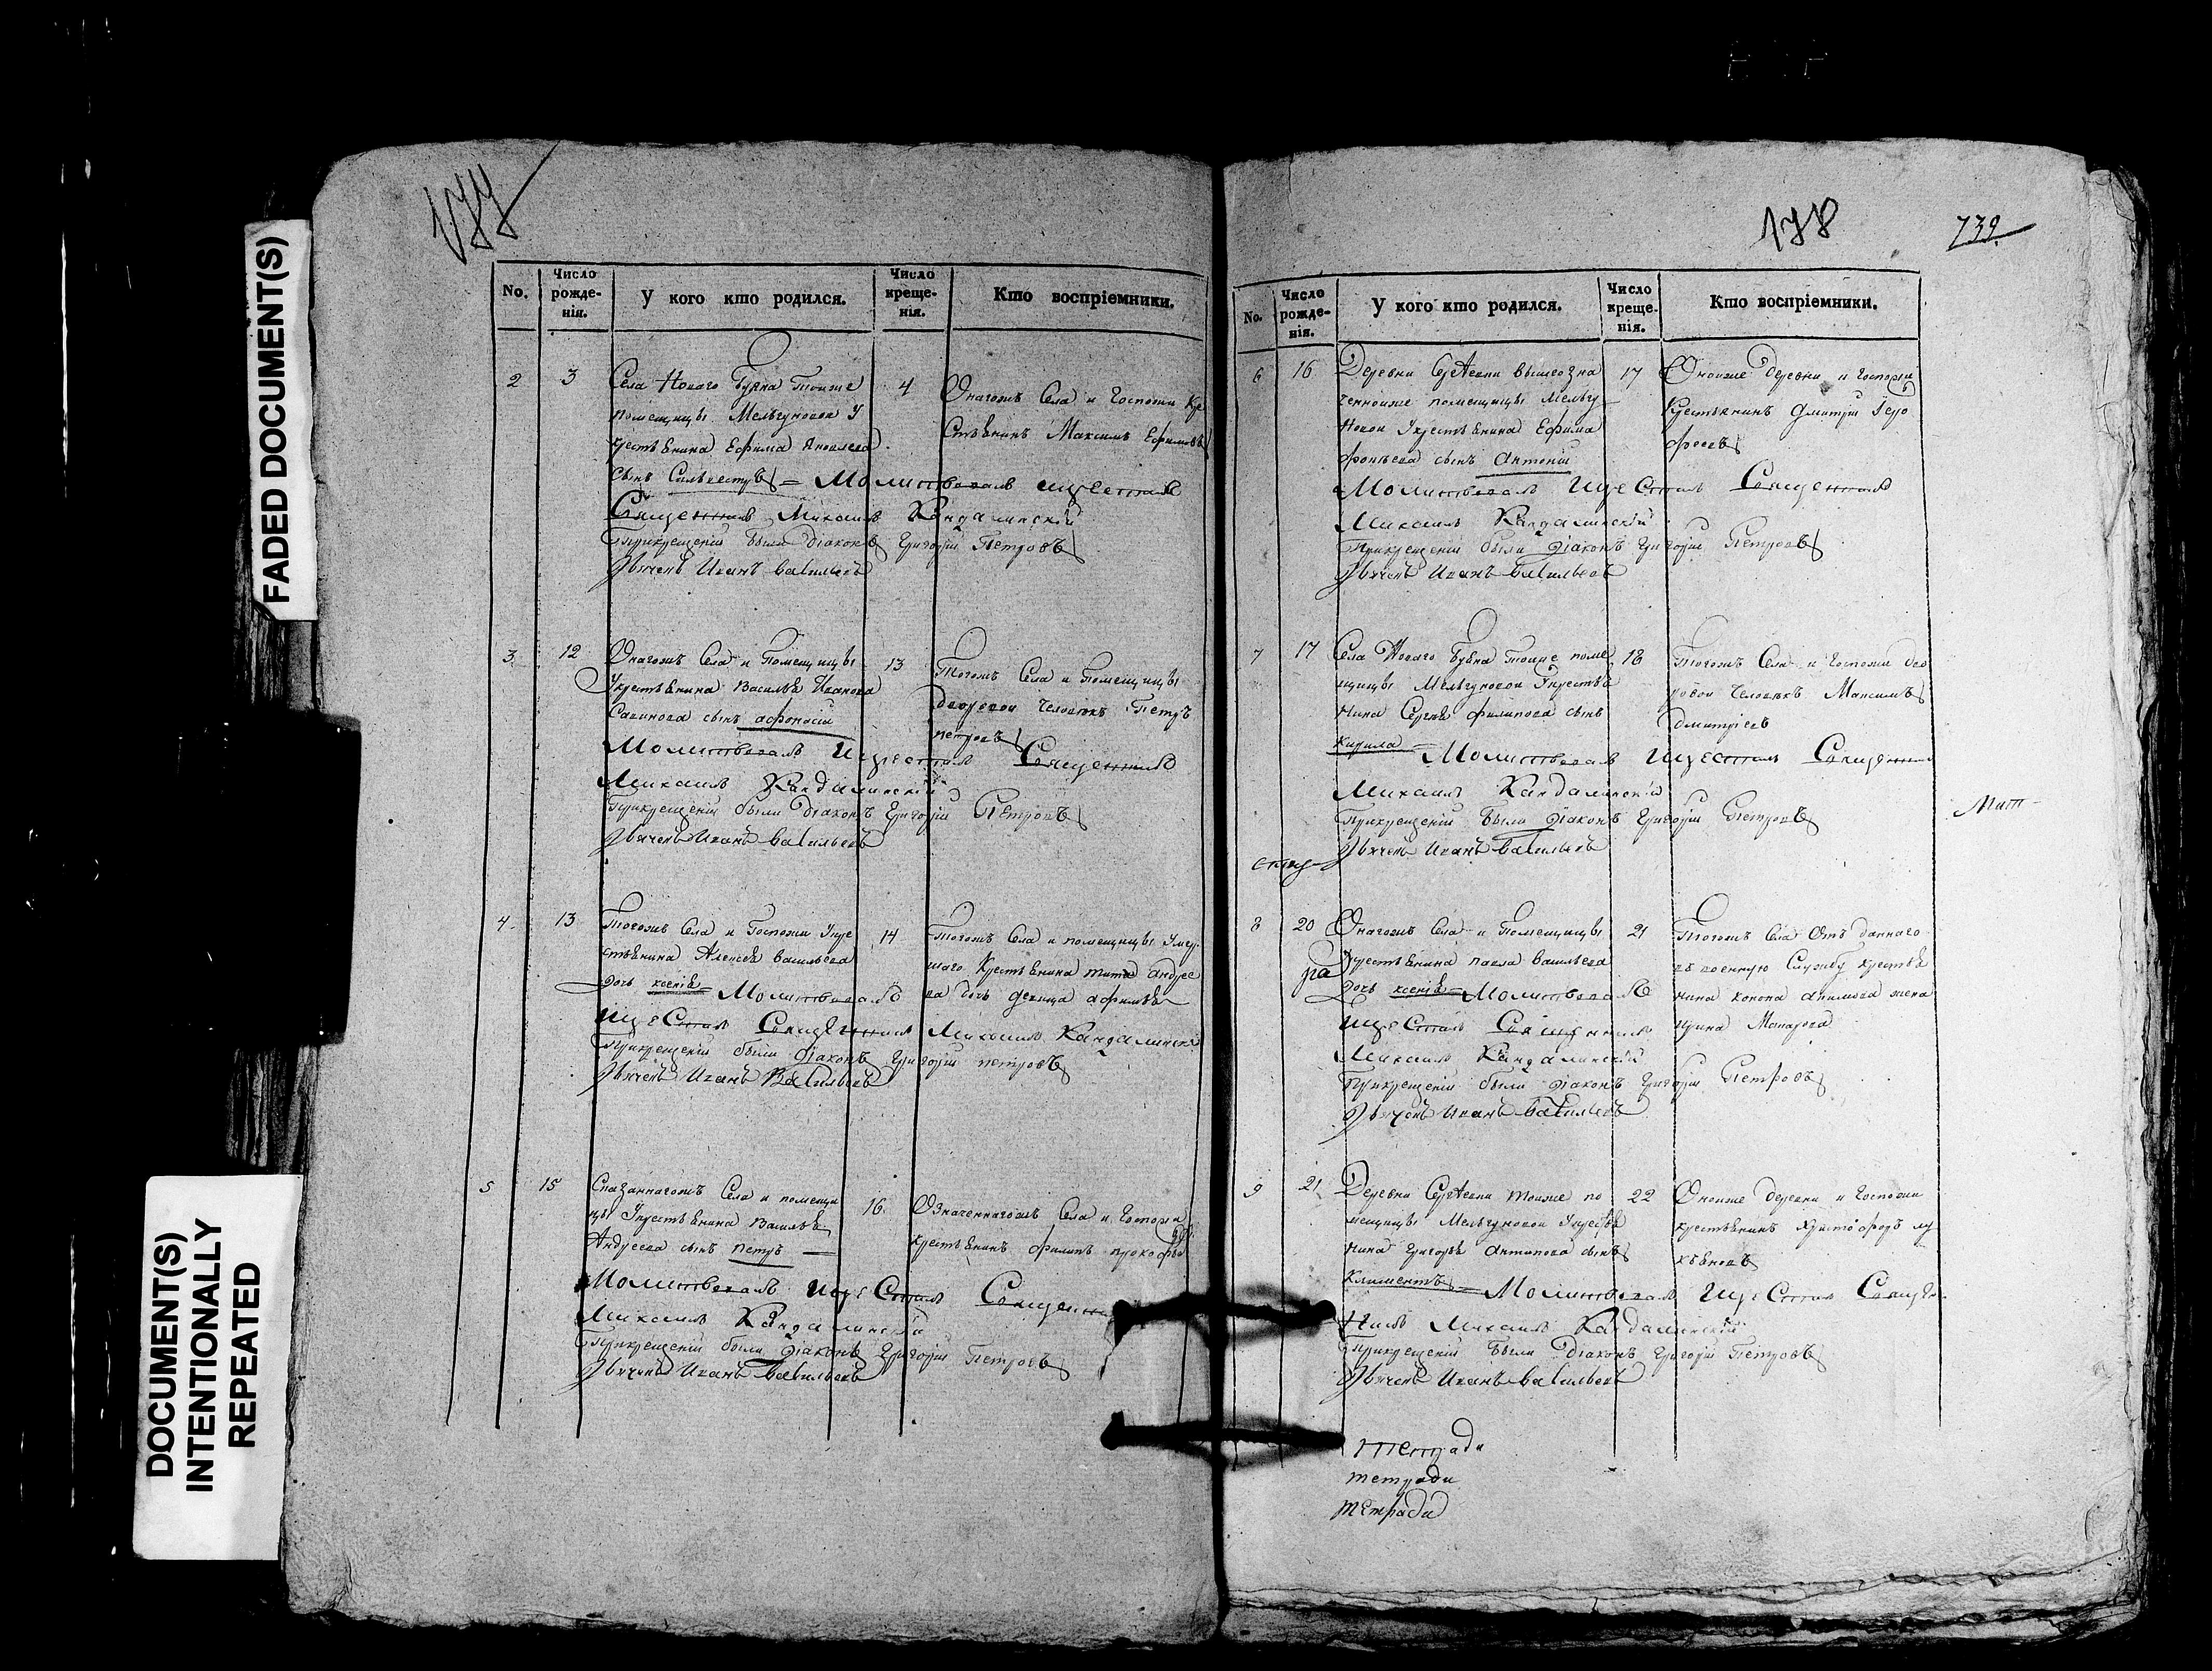 FADED DOCUMENT(S)
DOCUMENT(S)
INTENTIONALLY
REPEATED
177
No.
Число рожденія.
У кого кто родился.
Число крещенія.
Кто воспріемники.
2
3
Села Новаго Буяна тоиже
помещицы Мельгуновой У
крестьянина Ефима Яковлева
сынъ Сильвестръ – Молитвовалъ икрестилъ
Священникъ Михаилъ Кандалинскій
Прикрещеніи были діаконъ Григорій Петровъ
Дьячекъ Иванъ Васильевъ
4
Онагожъ Села и Госпожи Кре
стьянинъ Максимъ Ефимовъ
3
12
Онагожъ Села и Помещицы
Укрестьянина Василья Иванова
Савинова сынъ афонасій
Молитвовалъ Икрестилъ Священникъ
Михаилъ Кандалинскій
Прикрещеніи были діаконъ Григорій Петровъ
Дьячекъ Иванъ Васильевъ
13
Тогожъ Села и Помещицы
дворовой человекъ Петръ
петровъ
4.
13
Тогожъ Села и Госпожи Укре
стьянина Алексея Васильева
дочь ксенія – Молитвовалъ
ИкреСтилъ Священникъ Михаилъ Кандалинскій
Прикрещеніи были діаконъ Григорій петровъ
Дьячекъ Иванъ Васильевъ
14
Тогожъ Села и помещицы Умер
шаго Крестьянина тита андрее
ва дочь девица афимья
5
15
Сказаннагожъ Села и помещи
цы Укрестьянина Василья
Андреева сынъ петръ
Молитвовалъ ИкреСтилъ Священни
Михаилъ Кандалинскій
Прикрещеніи были діаконъ Григорій Петровъ
Дьячекъ Иванъ Васильевъ
16.
Означеннагожъ Села и Госпожи
крестьянинъ филипъ прокофьевъ
178
739.
No.
Число рожденія.
У кого кто родился.
Число крещенія.
Кто воспріемники.
6
16
Деревни Сергѣевки вышеозна
ченноиже помещицы Мельгу
новой Укрестьянина Ефима
сынъ Антоній
Молитвовалъ ИкреСтилъ Священникъ
Михаилъ Кандалинскій
Прикрещеніи были діаконъ Григорій Петровъ
Дьячекъ Иванъ Васильевъ
17
Оноиже деревни и Госпожи
Крестьянинъ Дмитрій Іеро
фѣевъ
7
17
Села Новаго Буяна тоиже поме
щицы Мельгуновой Укрестья
нина Сергѣя филипова сынъ
Кирила – Молитвовалъ ИкреСтилъ Священник
Михаилъ Кандалинскій
Прикрещеніи были діаконъ Григорій Петровъ
Дьячекъ Иванъ Васильевъ
18
Тогожъ Села и Госпожи дво
ровой человекъ Максимъ
Дмитріевъ
8
20
Онагожъ Села и Помещицы
Укрестьянина павла Васильева
дочь ксенія – Молитвовалъ
ИкреСтилъ Священникъ
Михаилъ Кандалинскій
Прикрещеніи были діаконъ Григорій Петровъ
Дьячекъ Иванъ Васильевъ
21
Тогожъ Села Отъ даннаго
въ военную Службу Крестья
нина конона акимова жена
Ирина Макарова
9
21
Деревни Сергѣевки тоиже по
мещицы Мельгуновой Укрестья
нина Григорья Антипова сынъ
Климентъ – Молитвовалъ ИкреСтилъ Священ
никъ Михаилъ Кандалинскій
Прикрещеніи были діаконъ Григорій Петровъ
Дьячекъ Иванъ Васильевъ
22
Оноиже деревни и Госпожи
крестьянинъ Христофоръ лу
кьяновъ
тетради
тетради
тетради